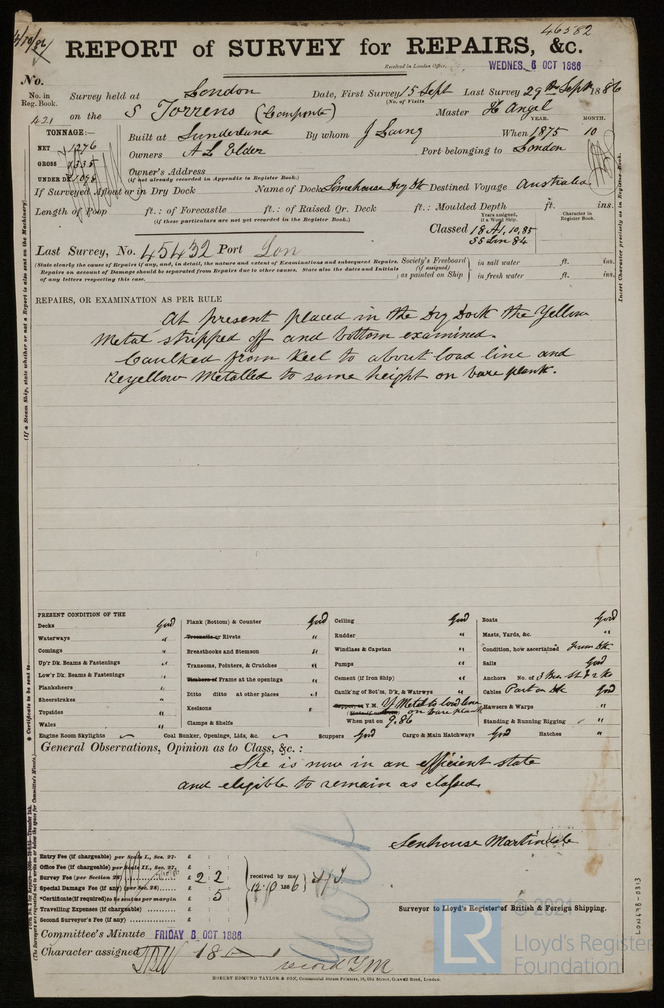 46582
REPORT of SURVEY for REPAIRS, &c.
Received in London Office,
WEDNES. 6 OCT 1886
No.
No. in Reg. Book. Survey held at London Date, First Survey 15 Sept Last Survey 29th Sept 1886
(No. of Visits
421 on the S Torrens (Composite) Master H Angel
TONNAGE:— YEAR. MONTH.
NET 1276 Built at Sunderland By whom J Laing When 1875 10
GROSS 1335 Owners A L Elder Port belonging to London
UNDER DK 1098 Owner's Address
(if not already recorded in Appendix to Register Book.)
If Surveyed Afloat or in Dry Dock Name of Dock Limehouse Dry Dk Destined Voyage Australia
Length of Poop ft.: of Forecastle ft.: of Raised Qr. Deck ft.: Moulded Depth ft. ins.
(if these particulars are not yet recorded in the Register Book.)
Years assigned, if a Wood Ship. Character in Register Book.
Classed 18 A1, 10,85
SS Lon 84
Last Survey, No. 45432 Port Lon
(State clearly the cause of Repairs if any, and, in detail, the nature and extent of Examinations and subsequent Repairs.
Repairs on account of Damage should be separated from Repairs due to other causes. State also the dates and Initials
of any letters respecting this case.
Society's Freeboard (if assigned) as painted on Ship in salt water ft. ins.
in fresh water ft. ins.
REPAIRS, OR EXAMINATION AS PER RULE
At present placed in the Dry Dock the Yellow
Metal stripped off and bottom examined.
Caulked from Keel to about load line and
Reyellow Metalled to same height on bare plank.
PRESENT CONDITION OF THE
Decks Good
Waterways "
Comings "
Up'r Dk. Beams & Fastenings "
Low'r Dk. Beams & Fastenings "
Planksheers "
Sheerstrakes "
Topsides "
Wales "
Engine Room Skylights
Plank (Bottom) & Counter Good
Treenails or Rivets "
Breasthooks and Stemson "
Transoms, Pointers, & Crutches "
Timbers or Frame at the openings "
Ditto ditto at other places "
Keelsons "
Clamps & Shelfs "
Coal Bunker, Openings, Lids, &c.
Ceiling Good
Rudder "
Windlass & Capstan "
Pumps "
Cement (if Iron Ship) "
Caulk'ng of Bot'm, D'k, & Watrwys "
Copper, or Y.M. Y Metal to load line
on bare plank
When put on 9.86
Scuppers Good Cargo & Main Hatchways Good
Boats Good
Masts, Yards, &c. "
Condition, how ascertained From Dk
Sails Good
Anchors No. of 3
Cables Part on Dk Good
Hawsers & Warps "
Standing & Running Rigging "
Hatches "
General Observations, Opinion as to Class, &c. :
She is now in an efficient state
and eligible to remain as classed.
Senhouse Martindale
Surveyor to Lloyd's Register of British & Foreign Shipping.
Entry Fee (if chargeable) per Scale I., Sec. 27. £
Office Fee (if chargeable) per Scale II., Sec. 27. £
Survey Fee (per Section 28) £ 2 2
Special Damage Fee (if any) (per Sec. 28) £
*Certificate (if required) to be sent as per margin £ 5
Travelling Expenses (if chargeable) £
Second Surveyor's Fee (if any) £
received by me
12/10 1886
Committee's Minute FRIDAY 8 OCT 1886
Character assigned 18
record YM
ROBERT EDMUND TAYLOR & SON, Commercial Steam Printers, 19, Old Street, Goswell Road, London.
© 2021
LR
Lloyd's Register
Foundation
LON478-0313